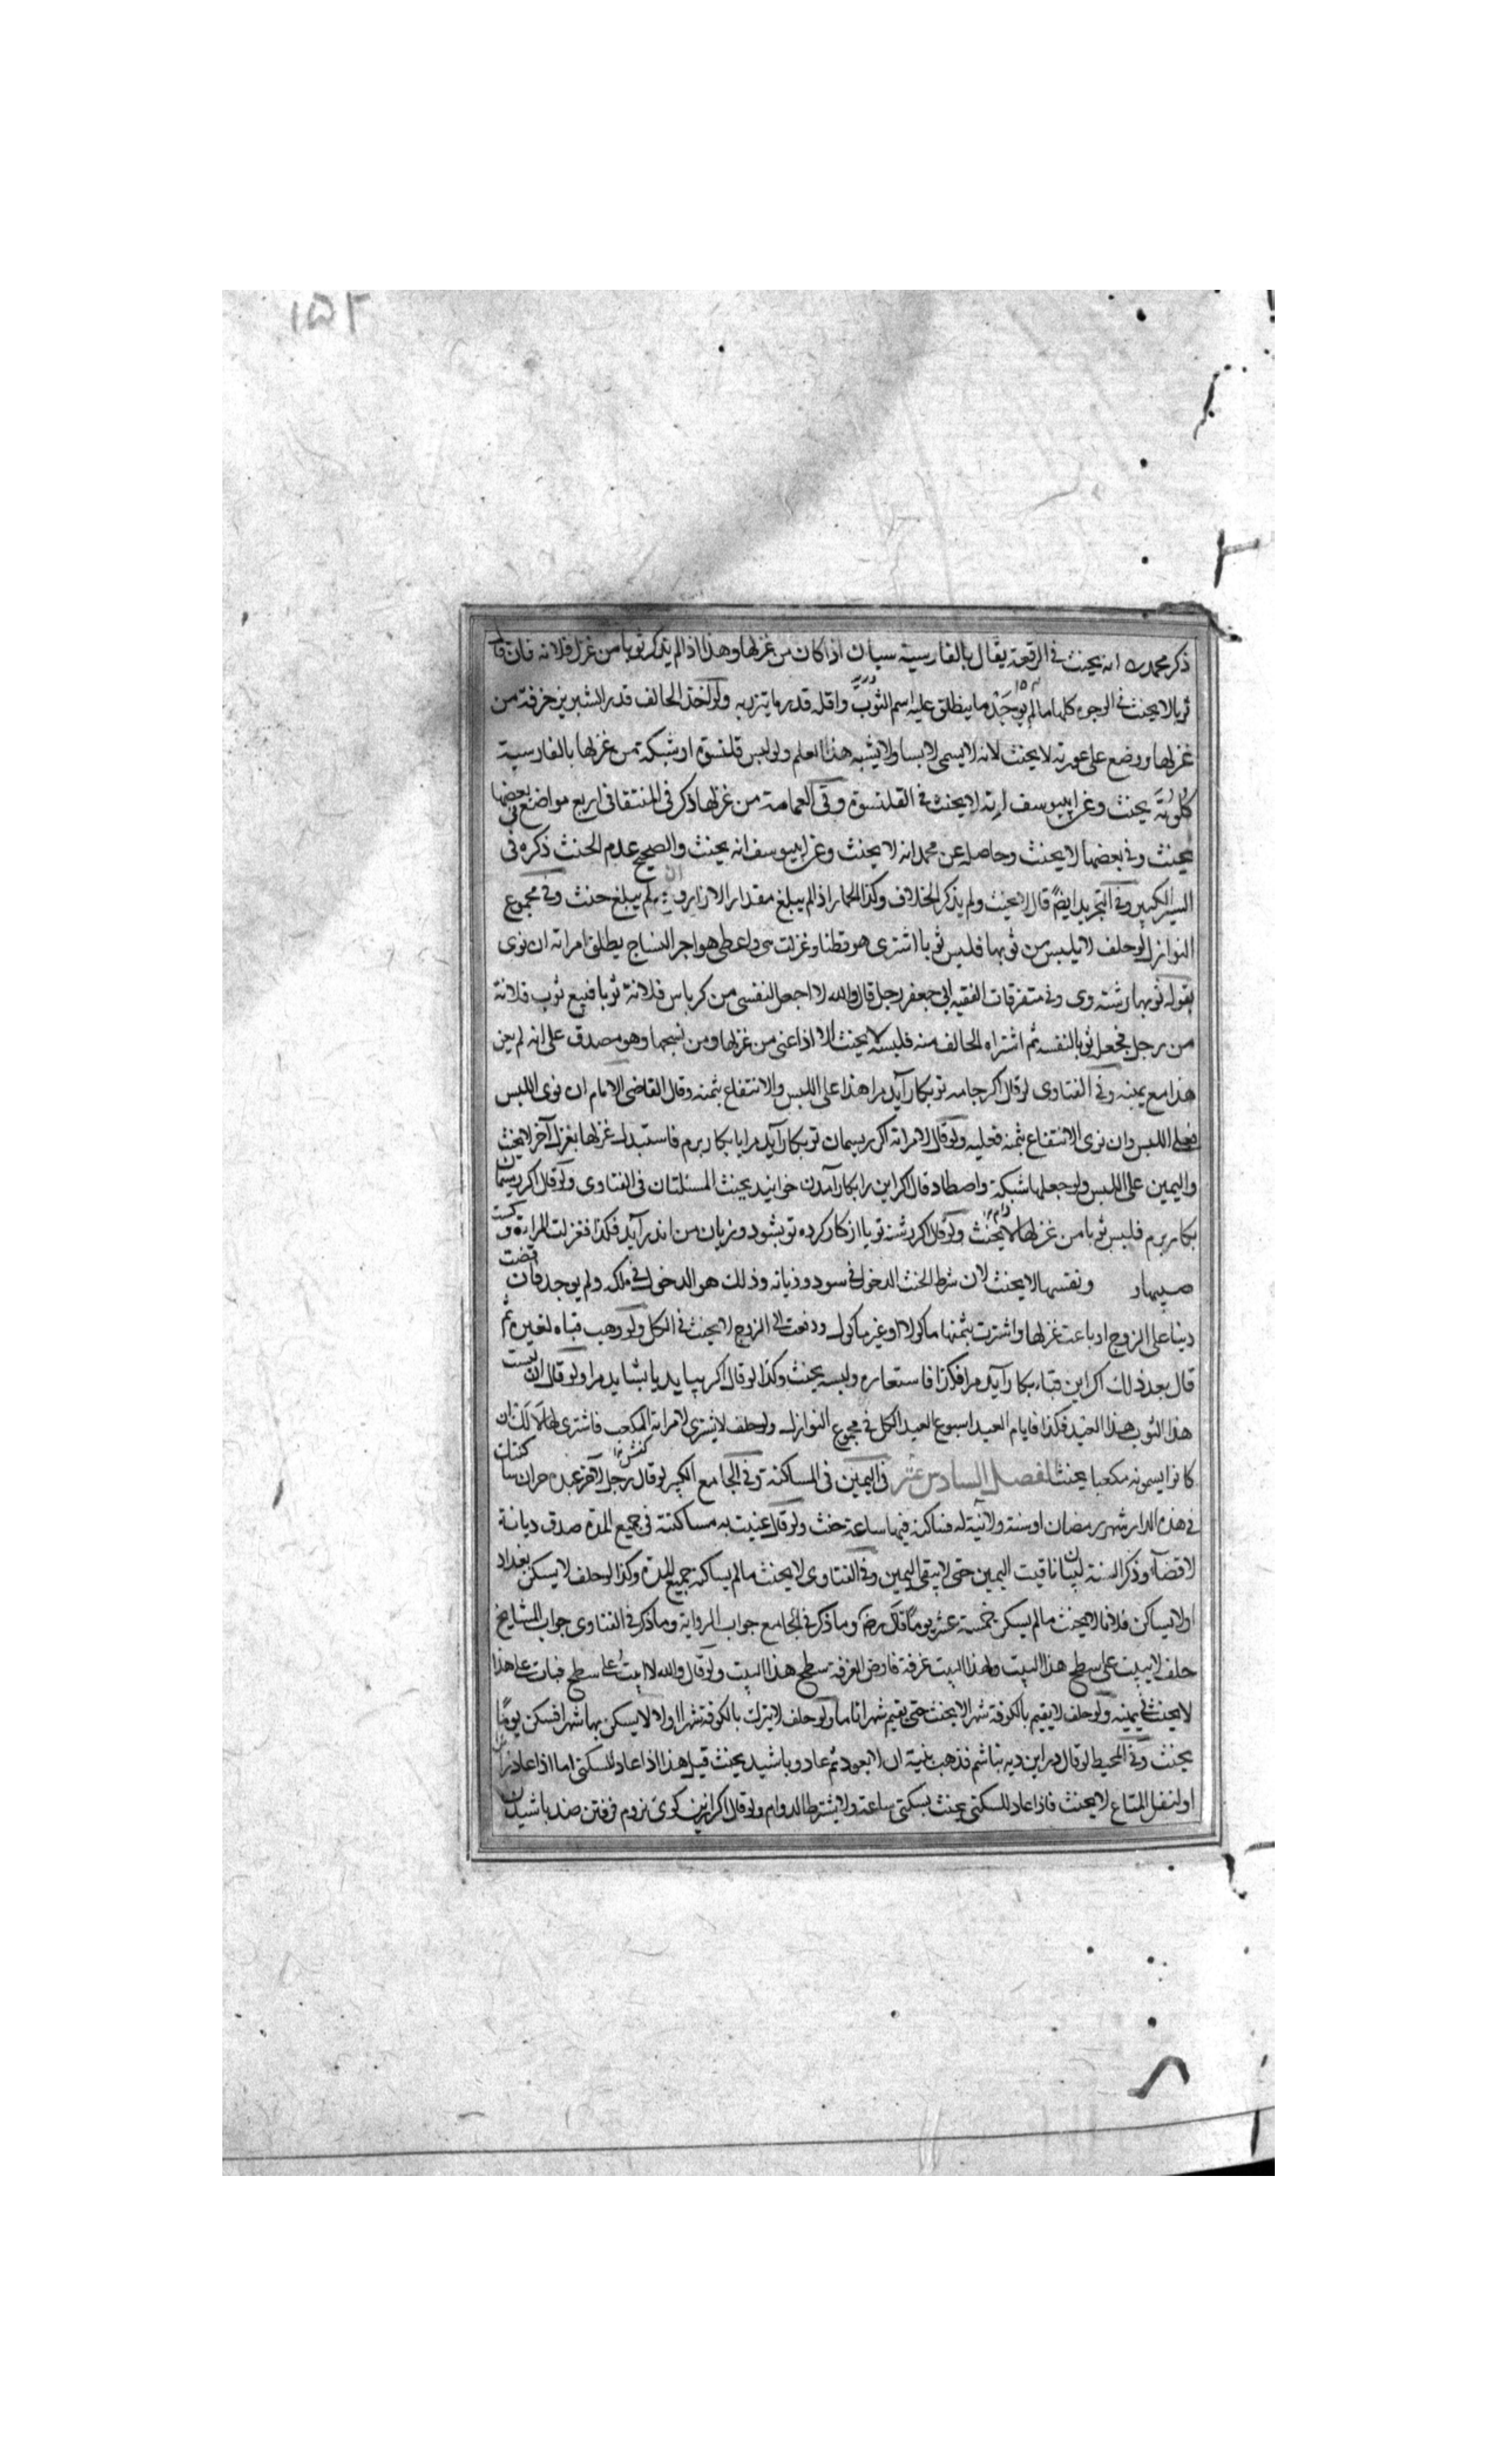 ١٥٢
ذكر محمد ره انه يحنث في الرقعة يقال بالفارسية سبان اذا كان من غزلها وهذا اذا لم يذكر ثوبا من غزل فلانه فان قال
ثوبا لا يحنث في الوجوه كلها ما لم يوجد ما ينطلق عليه اسم الثوب واقله قدر ما يتزر به ولو اخذ الحالف قدر الشبرين خرقة من
غزلها ووضع على عورته لا يحنث لانه لا يسمى لابسا ولا يشبه هذا العلم ولو لبس قلنسوة او شبكة من غزلها بالفارسية
كلوته يحنث وعن ابييوسف انه لا يحنث في القلنسوة وفي العمامة من غزلها ذكر في المنتقا في اربع مواضع في بعضها
يحنث وفي بعضها لا يحنث وحاصله عن محمد انه لا يحنث وعن ابييوسف انه يحنث والصحيح عدم الحنث ذكره في
السير الكبير وفي التجريد ايضا قال لا يحنث ولم يذكر الخلاف وكذا الخمار اذا لم يبلغ مقدار الازار و لم يبلغ حنث وفي مجموع
النوازل لو حلف لا يلبس من ثوبها فلبس ثوبا اشترى هو قطنا وغزلت هى واعطى هو اجر النساج يطلق امراته ان نوى
بقوله ثوبها رشته وى وفي متفرقات الفقيه ابي جعفر رجل قال والله لا اجعل لنفسى من كرباس فلانة ثوبا فبيع ثوب فلانة
من رجل فجعل ثوبا لنفسه ثم اشتراه الحالف منه فلبسه لا يحنث الا اذا عنى من غزلها ومن نسجها وهو مصدق على انه لم يعن
هذا مع يمينه وفي الفتاوى لو قال اكر جامه تو بكار آيد مرا هذا على اللبس والانتفاع بثمنه وقال القاضى الامام ان نوى اللبس
فعلى اللبس وان نوى الانتفاع بثمنه فعليه ولو قال لامراته اكر ريسمان تو بكار آيد مرا يا بكار برم فاستبدل غزلها بغزل آخر لا يحنث
واليمين على اللبس ولو جعلها شبكة واصطاد قال اكر اين را بكار آمدن خوانيد يحنث المسئلتان في الفتاوى ولو قال اكر ريسمان
بكار برم فلبس ثوبا من غزلها لا يحنث ولو قال اكر رشته تو يا از كار كرده تو بسود وزيان من اندر آيد فكذا فغزلت المراة و كست
صبيها و ونفسها لا يحنث لان شرط الحنث الدخول في سود وزيانه وذلك هو الدخول في ملكه ولم يوجد فان قضت
دينا على الزوج او باعت غزلها واشترت بثمنها ماكولا او غير ماكول ودفعت الى الزوج لا يحنث في الكل ولو وهب قباه لغيره ثم
قال بعد ذلك اكر اين قباء بكار آيد مرا فكذا فاستعاره ولبسه يحنث وكذا لو قال اكر ببايد يا بشايد مرا ولو قال ان لبست
هذا الثوب هذا العيد فكذا فايام العيد اسبوع العيد الكل في مجموع النوازل ولو حلف لا يشترى لامراته المكعب فاشترى لها لالك ان
كانوا يسمونه مكعبا يحنث الفصل السادس عشر في اليمين في المساكنة وفي الجامع الكبير لو قال رجل لآخر عبده حر ان ساكنتك
في هذه الدار شهر رمضان او سنة ولا نية له فساكنه فيها ساعة حنث ولو قال عنيت به مساكنته في جميع المدة صدق ديانة
لا قضاء وذكر السنة لبيان تاقيت اليمين حتى لا يبقى اليمين وفي الفتاوى لا يحنث ما لم يساكنه جميع المدة وكذا لو حلف لا يسكن بغداد
او لا يساكن فلانا لا يحنث ما لم يسكن خمسة عشر يوما قال رض وما ذكر في الجامع جواب الرواية وما ذكر في الفتاوى جواب المشايخ
حلف لا يبيت على سطح هذا البيت ولهذا البيت غرفة فارض الغرفة سطح هذا البيت ولو قال والله لا ابيت على سطح فبات على هذا
لا يحنث في يمينه ولو حلف لا يقيم بالكوفة شهرا لا يحنث حتى يقيم شهرا تاما ولو حلف لا ينزلت بالكوفة شهرا او لا يسكن بها شهرا فسكن يوما
يحنث وفي المحيط لو قال در اين ديه نباشم فذهب بنية ان لا يعود ثم عاد وباشيد يحنث قيل هذا اذا عاد للسكنى اما اذا عاد زائرا
او لنقل المتاع لا يحنث فاذا عاد للسكنى يحنث بسكنى ساعة ولا يشترط الدوام ولو قال اكر ازين كوى نروم فرفتن ضد باشيدن